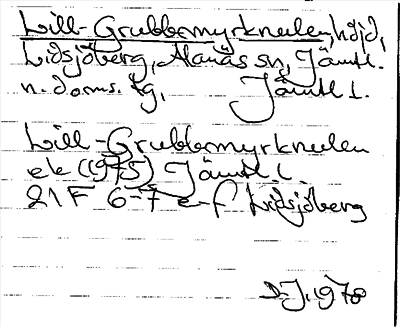 Lill-Grubbamyrknulen, höjd,
Lidsjöberg, Alanäs sn, Jämtl.
n. doms. tg, Jämtl l.
Lill-Grubbamyrknulen
ek (1975) Jämtl. l.
21 F 6-7 e-f Lidsjöberg
D.J. 1978